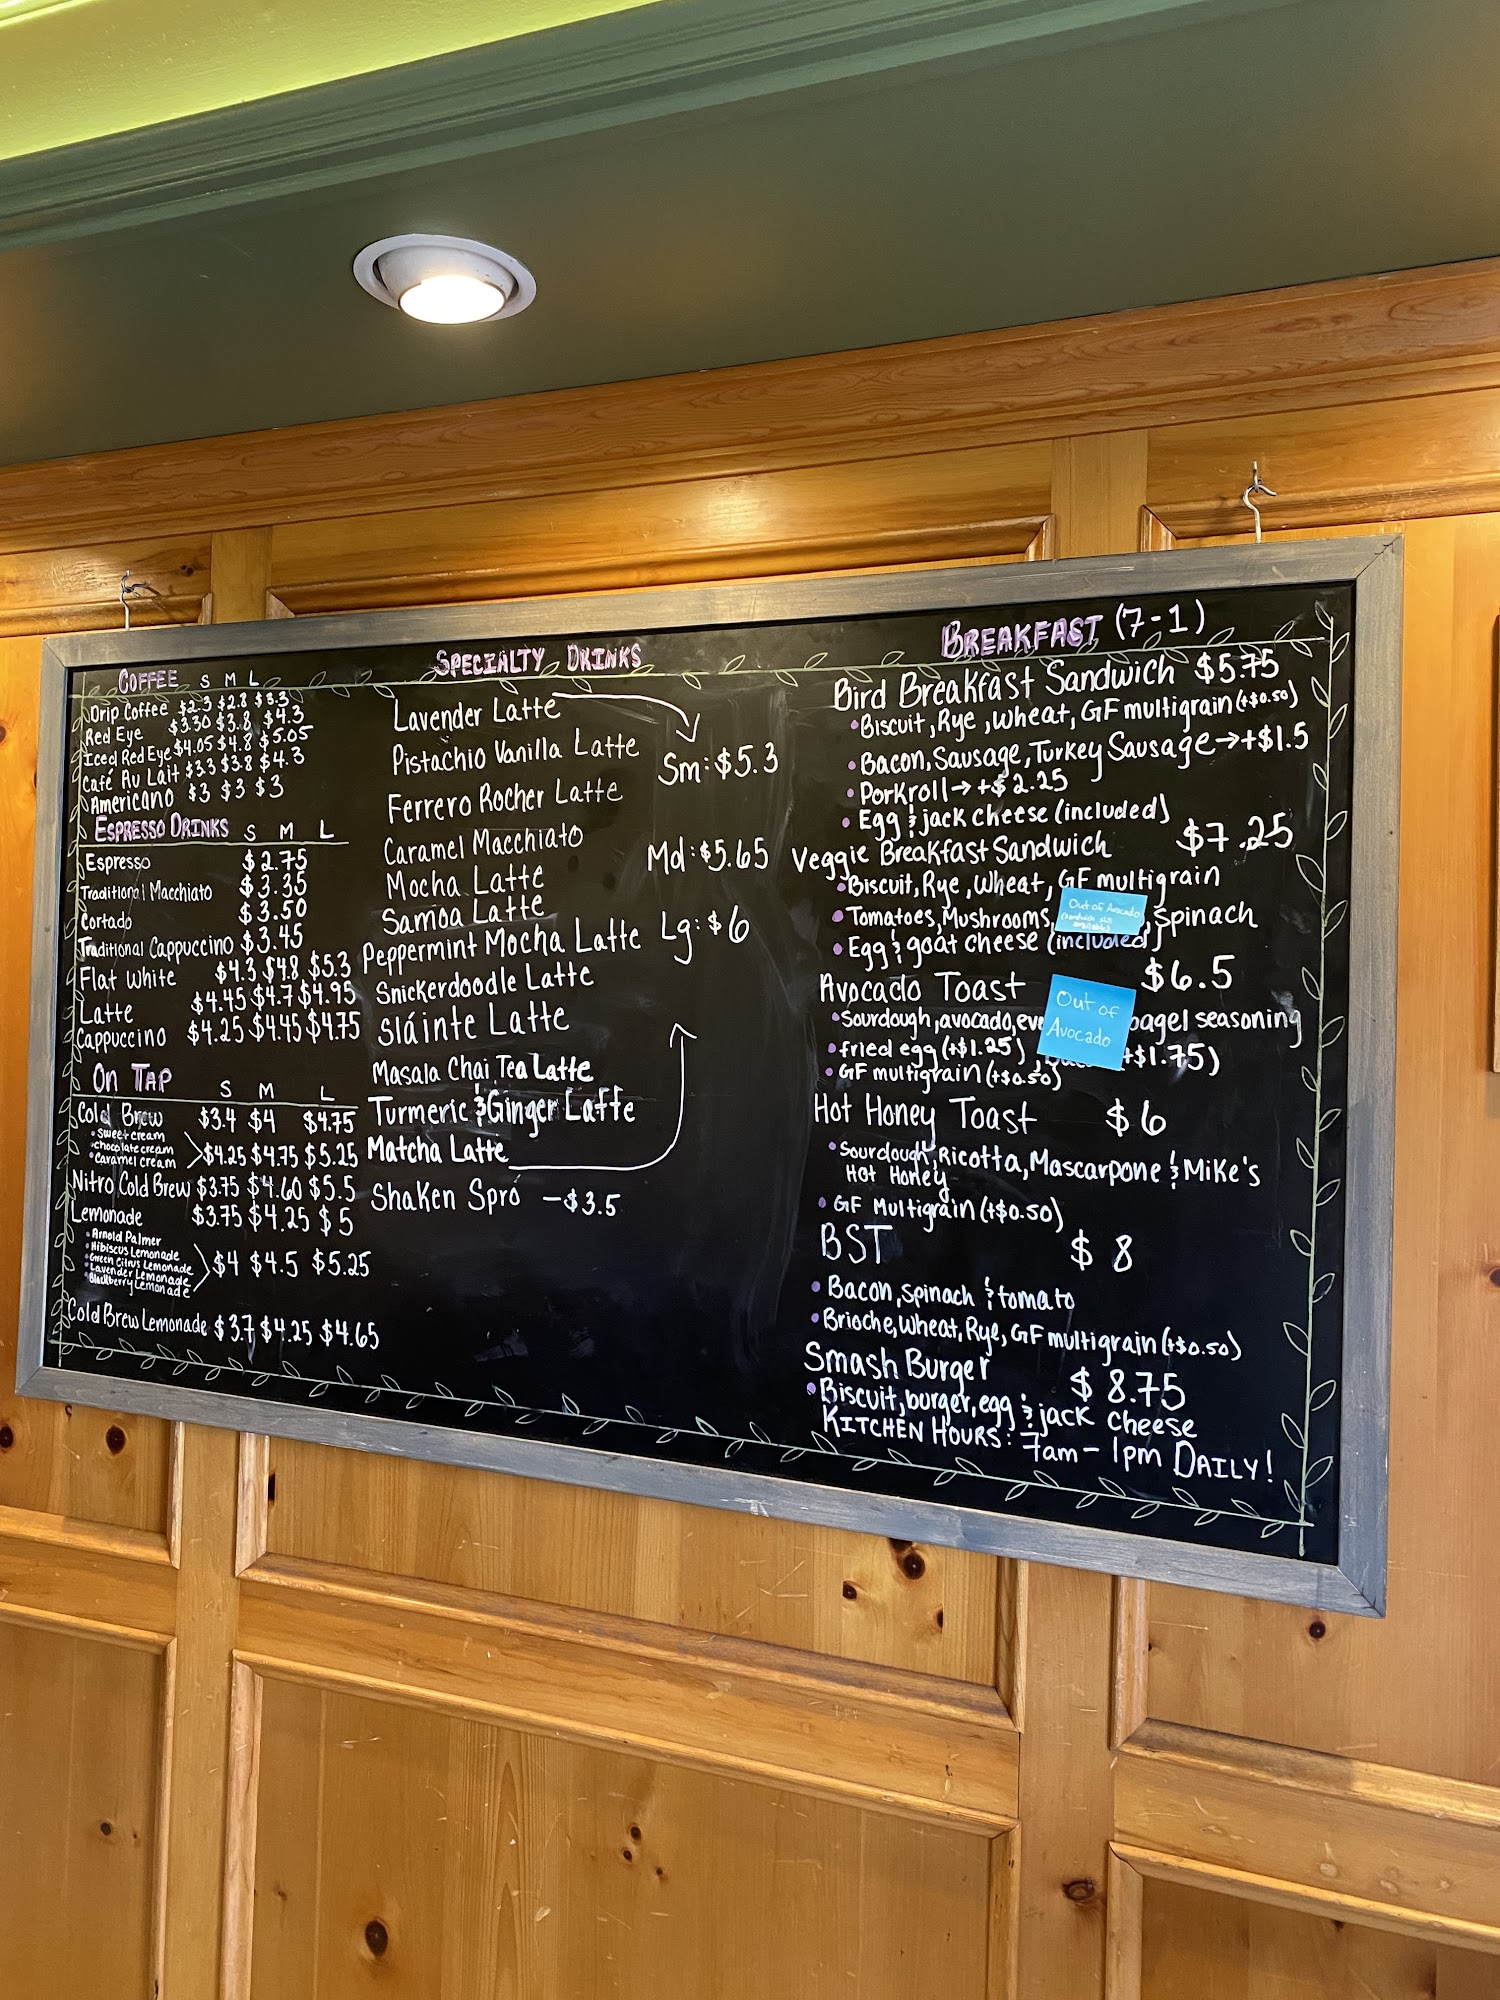 COFFEE S M L
Drip Coffee $2.3 $2.8 $3.3
Red Eye $3.30 $3.8 $4.3
Iced Red Eye $4.05 $4.8 $5.05
Café Au Lait $3.3 $3.8 $4.3
Americano $3 $3 $3
ESPRESSO DRINKS S M L
Espresso $2.75
Traditional Macchiato $3.35
Cortado $3.50
Traditional Cappuccino $3.45
Flat White $4.3 $4.8 $5.3
Latte $4.45 $4.7 $4.95
Cappuccino $4.25 $4.45 $4.75
ON TAP S M L
Cold Brew $3.4 $4 $4.75
• Sweet cream
• chocolate cream
• Caramel cream
$4.25 $4.75 $5.25
Nitro Cold Brew $3.75 $4.60 $5.5
Lemonade $3.75 $4.25 $5
• Arnold Palmer
• Hibiscus Lemonade
• Green Citrus Lemonade
• Lavender Lemonade
• Blackberry Lemonade
$4 $4.5 $5.25
Cold Brew Lemonade $3.7 $4.25 $4.65
SPECIALTY DRINKS
Lavender Latte
Pistachio Vanilla Latte
Ferrero Rocher Latte
Caramel Macchiato
Mocha Latte
Samoa Latte
Peppermint Mocha Latte
Snickerdoodle Latte
Sláinte Latte
Masala Chai Tea Latte
Turmeric & Ginger Latte
Matcha Latte
Sm: $5.3
Md: $5.65
Lg: $6
Shaken Spro —$3.5
BREAKFAST (7-1)
Bird Breakfast Sandwich $5.75
• Biscuit, Rye, Wheat, GF multigrain (+$0.50)
• Bacon, Sausage, Turkey Sausage → +$1.5
• Porkroll → +$2.25
• Egg & jack cheese (included)
Veggie Breakfast Sandwich $7.25
• Biscuit, Rye, Wheat, GF multigrain
• Tomatoes, Mushrooms, Spinach
Out of Avocado
• Egg & goat cheese (included)
Avocado Toast $6.5
• Sourdough, avocado, bagel seasoning
Out of
Avocado
• fried egg (+$1.25), +$1.75)
• GF multigrain (+$0.50)
Hot Honey Toast $6
• Sourdough, Ricotta, Mascarpone & Mike's
Hot Honey
• GF Multigrain (+$0.50)
BST $8
• Bacon, spinach & tomato
• Brioche, Wheat, Rye, GF multigrain (+$0.50)
Smash Burger $8.75
• Biscuit, burger, egg & jack cheese
KITCHEN HOURS: 7am - 1pm DAILY!